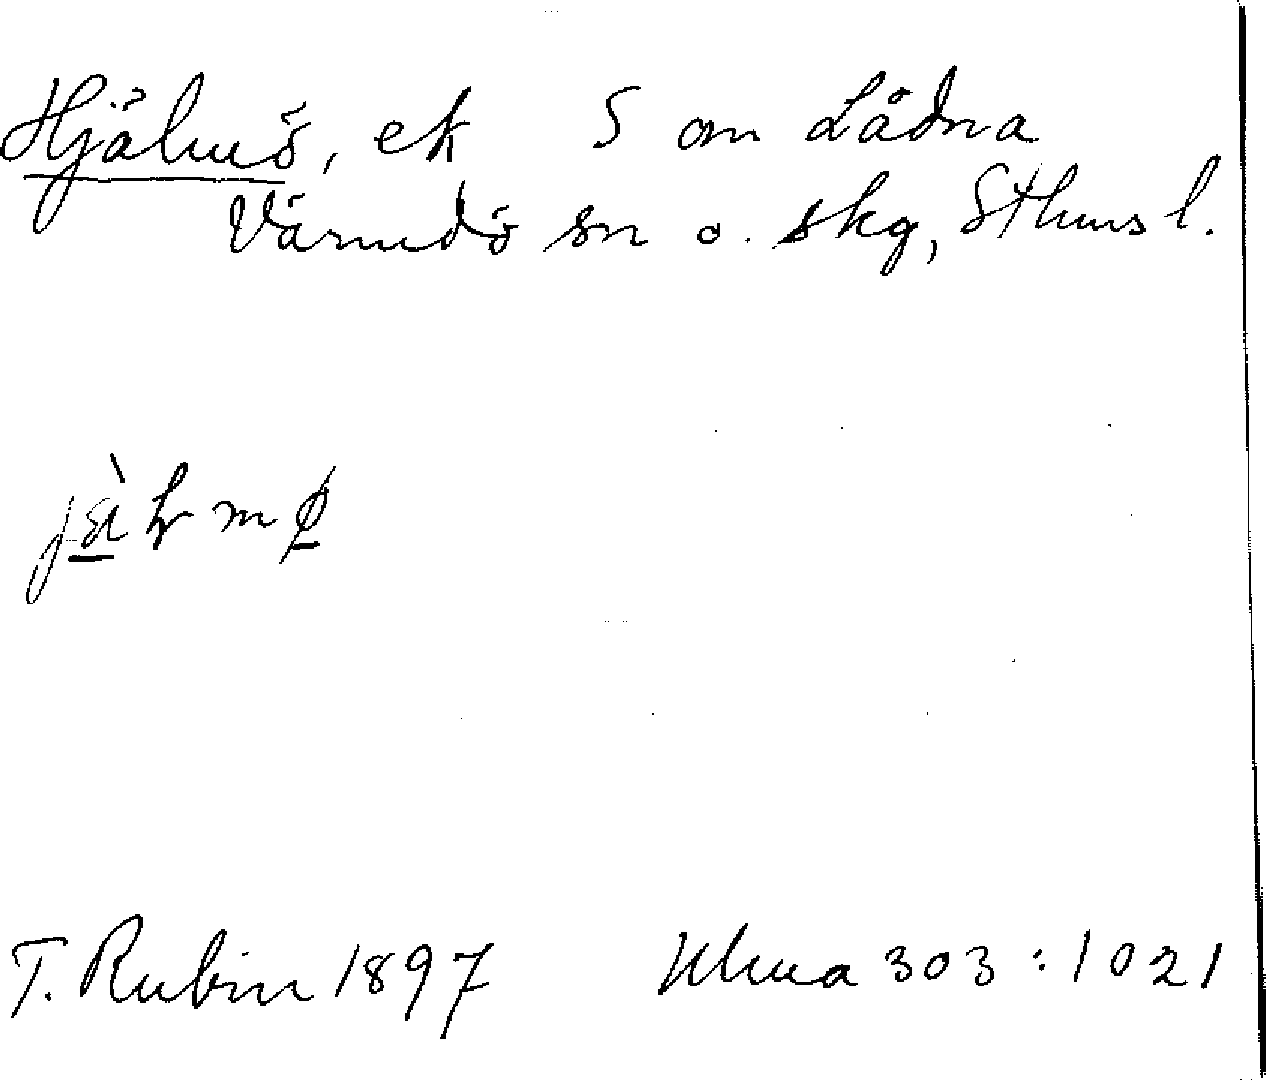 Hjälmö, ek S om Lådna
Värmdö sn o. skg, Sthms l.
T. Rubin 1897 Uhma 303 : 1021